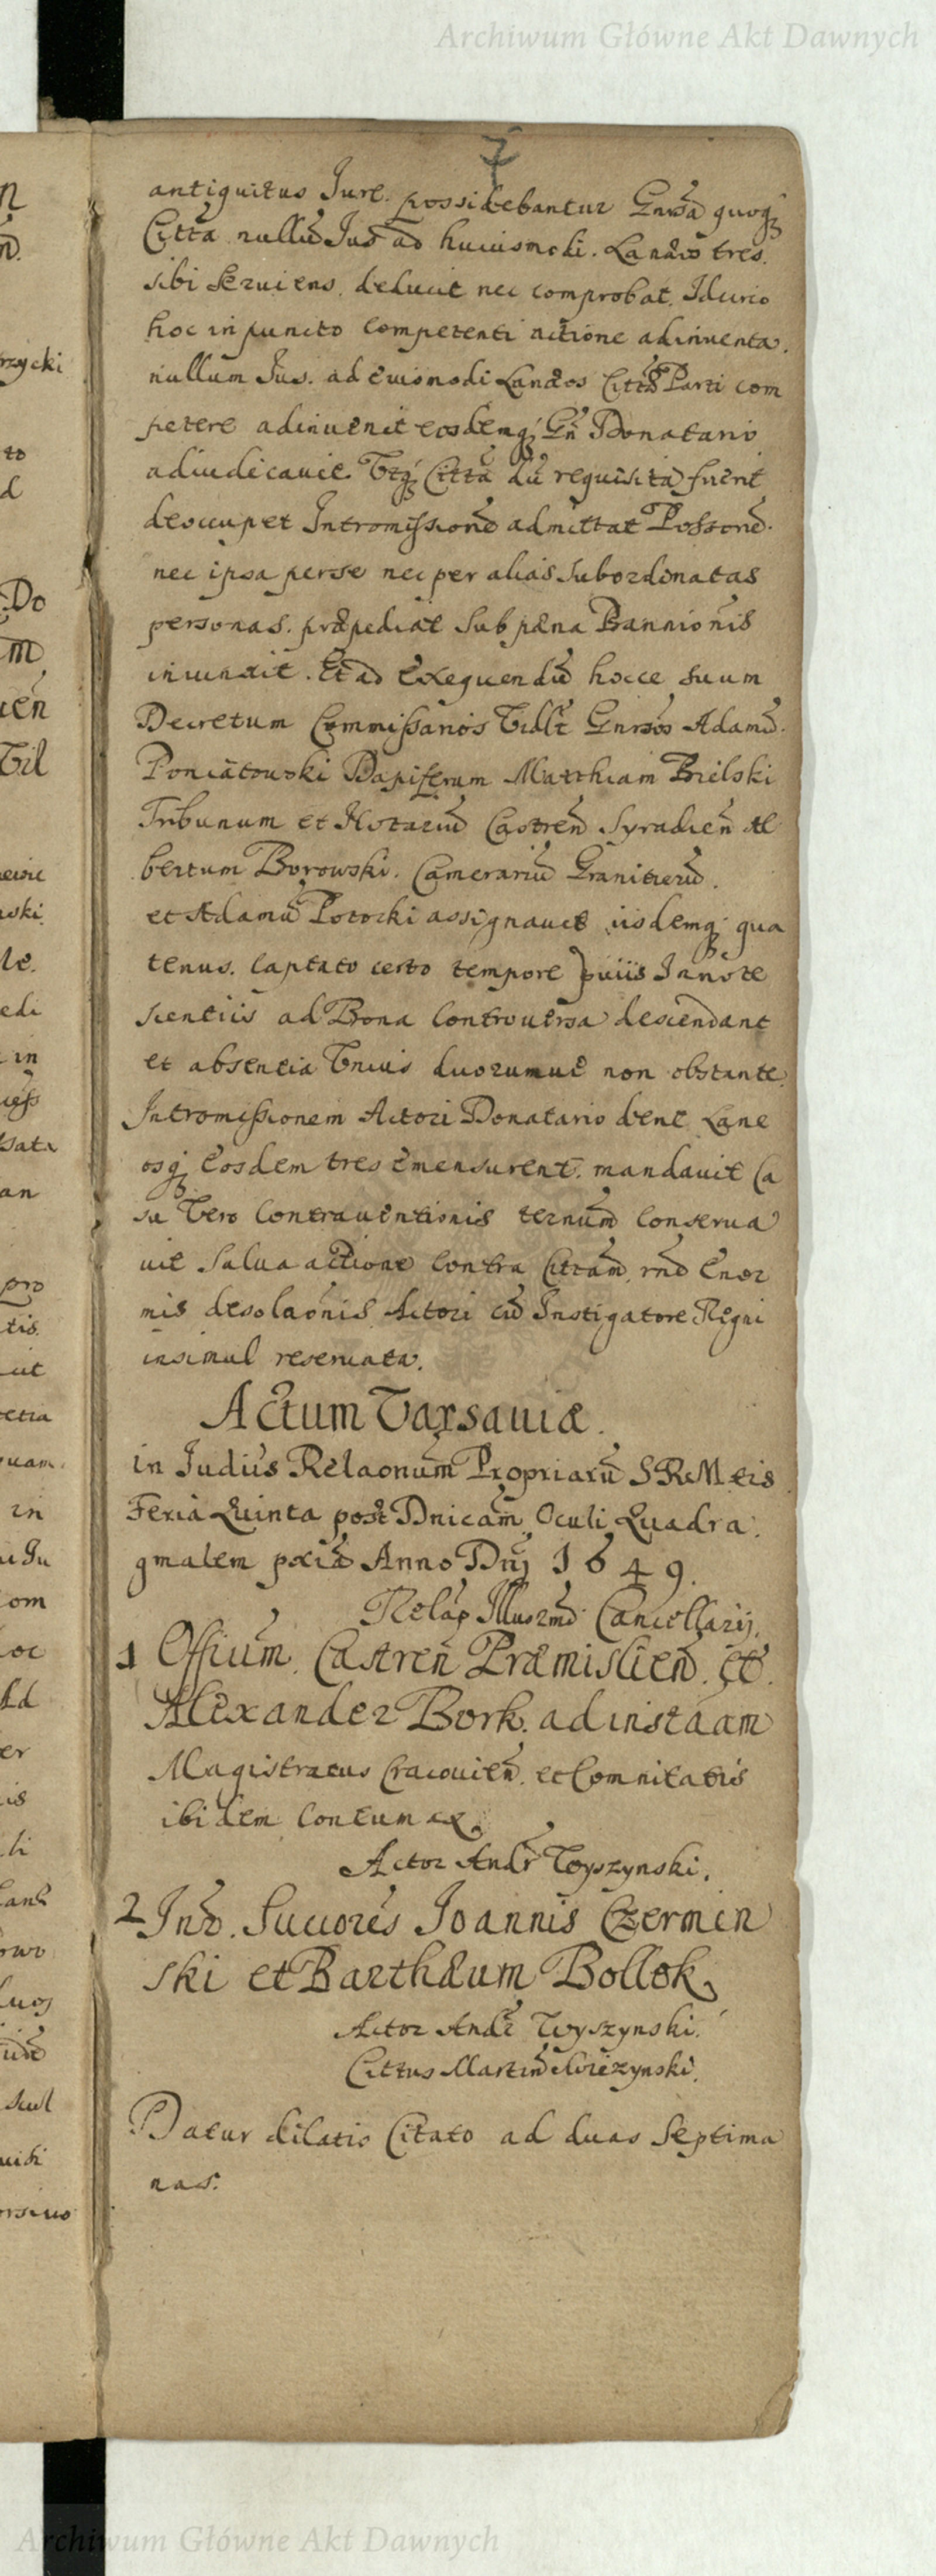 Archiwum Główne Akt Dawnych
7
antiquitus Jure possidebantur Gnrosa quoq;
Citta nullū Jus ad huiusmodi Laneos tres
sibi serviens deducit nec comprobat Iducirco
hoc in puncto competenti actione adinventa
nullum Jus ad eiusmodi Laneos Citta Parti com
petere adinvenit eosdemq; Gn Donatario
adiudicavit Utq; Citta dū requisita fuerit
deoccupet Intromissionē admittat Possonē
nec ipsa per se nec per alias subordinatas
personas præpediat sub pæna Bannionis
iniunxit. Et ad exequendū hocce suum
Decretum Commissarios Gnrosos Adamū
Poniatowski Dapiferum Matthiam Bielski
Tribunum et Notariū Castren̄ Syradien̄ Al
bertum Borowski Camerariū Granitierū
et Adamū Potocki assignavit iisdemq; qua
tenus captato certo tempore Innote
scentiis ad Bona Controversa descendant
et absentia Unius duorumve non obstante
Intromissionem Actori Donatario dent Lane
osq; eosdem tres emensurent mandavit Ca
su Vero Contraventionis ternum conserva
vit Salva actione contra Cittam rnē Enor
mis desolaonis Actori cū Instigatore Regni
insimul reservata.
Actum Varsaviæ.
in Judiis Relaonum Propriarū S R M tis
Feria Quinta post Dnicam Oculi Quadra
gmalem pxiā Anno Dnj 1649.
Relap Illusrmd Cancellarij.
1 Offium Castren̄ Præmislien̄ et
Alexander Bork ad instaam
Magistratus Cracovien̄ et Comnitatis
ibidem Contumax.
Actor Andr Wyszynski.
2 Inr. Succores Joannis Czermin
ski et Barthæum Bollok
Actor Andr Wyszynski.
Cittus Martin
Datur dilatio Citato ad duas Septima
nas.
Archiwum Główne Akt Dawnych